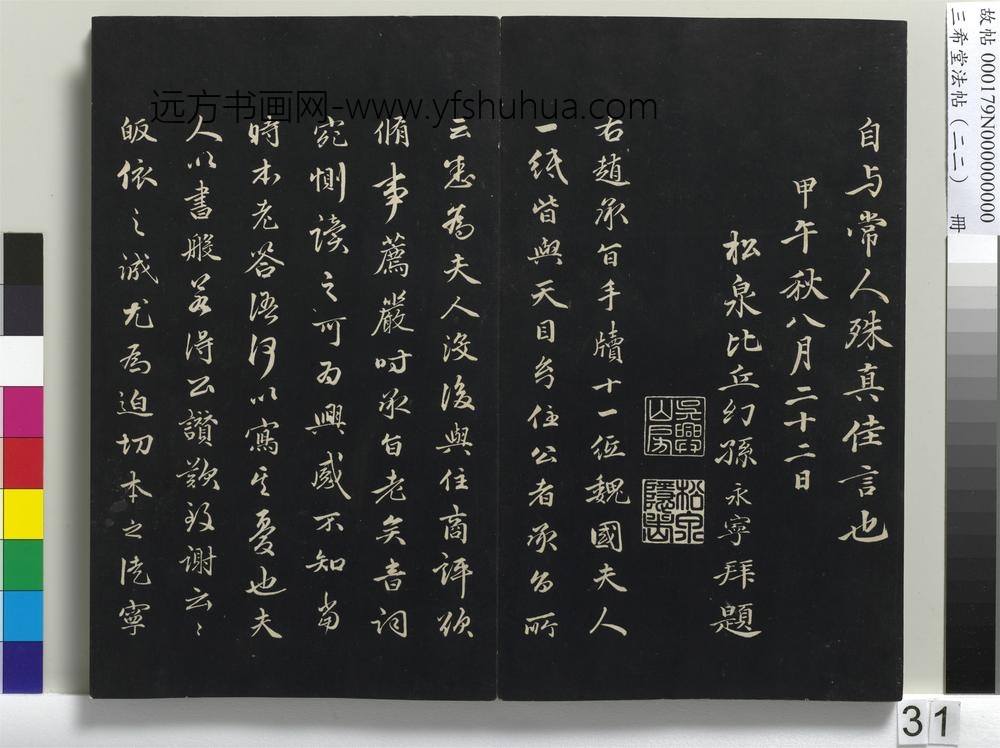 自与常人殊真佳言也
甲午秋八月二十二日
松泉比丘幻孫永寧拜題
吳興山房
松泉隱士
右趙承旨手牘十一幅魏國夫人
一紙皆與天目幻住公者承旨所
云悉為夫人没後與住商評欲
脩事薦嚴時承旨老矣音詞
宛惻讀之可為興感不知當
時本老答語何以寫其憂也夫
人以書般若得公讚歎致謝云云
皈依之誠尤為迫切本之徒寧
远方书画网-www.yfshuhua.com
故帖 000179N000000000
三希堂法帖（二二） 冊
31